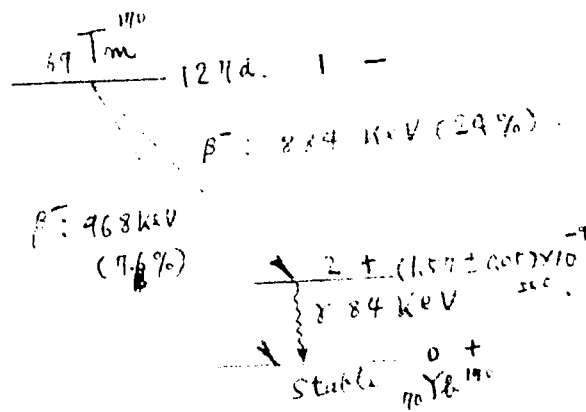 69 Tm 170
127d. 1 -
β⁻: 884 KeV (24%).
β⁻: 968 KeV
(76%)
2 + (1.57 ± 0.05)×10⁻⁹ sec.
γ 84 KeV
0 +
Stable 70Yb170